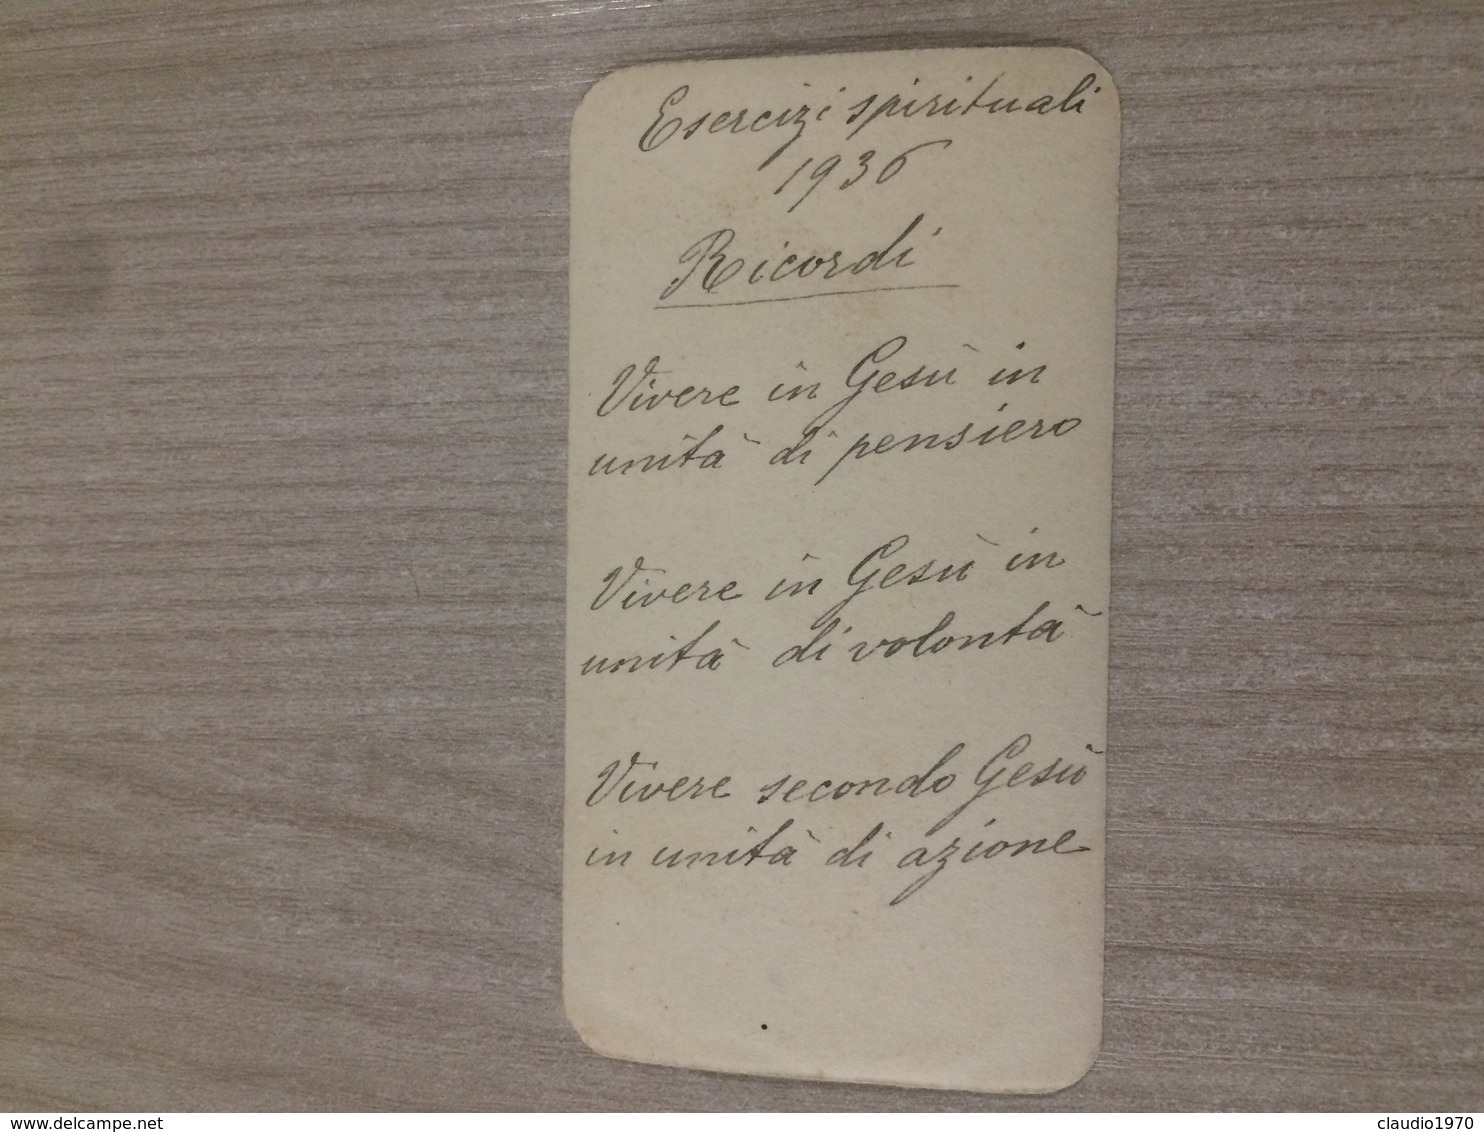 Esercizi spirituali
1936
Ricordi
Vivere in Gesù in
unità di pensiero
Vivere in Gesù in
unità di volontà
Vivere secondo Gesù
in unità di azione
delcampe.net
claudio1970